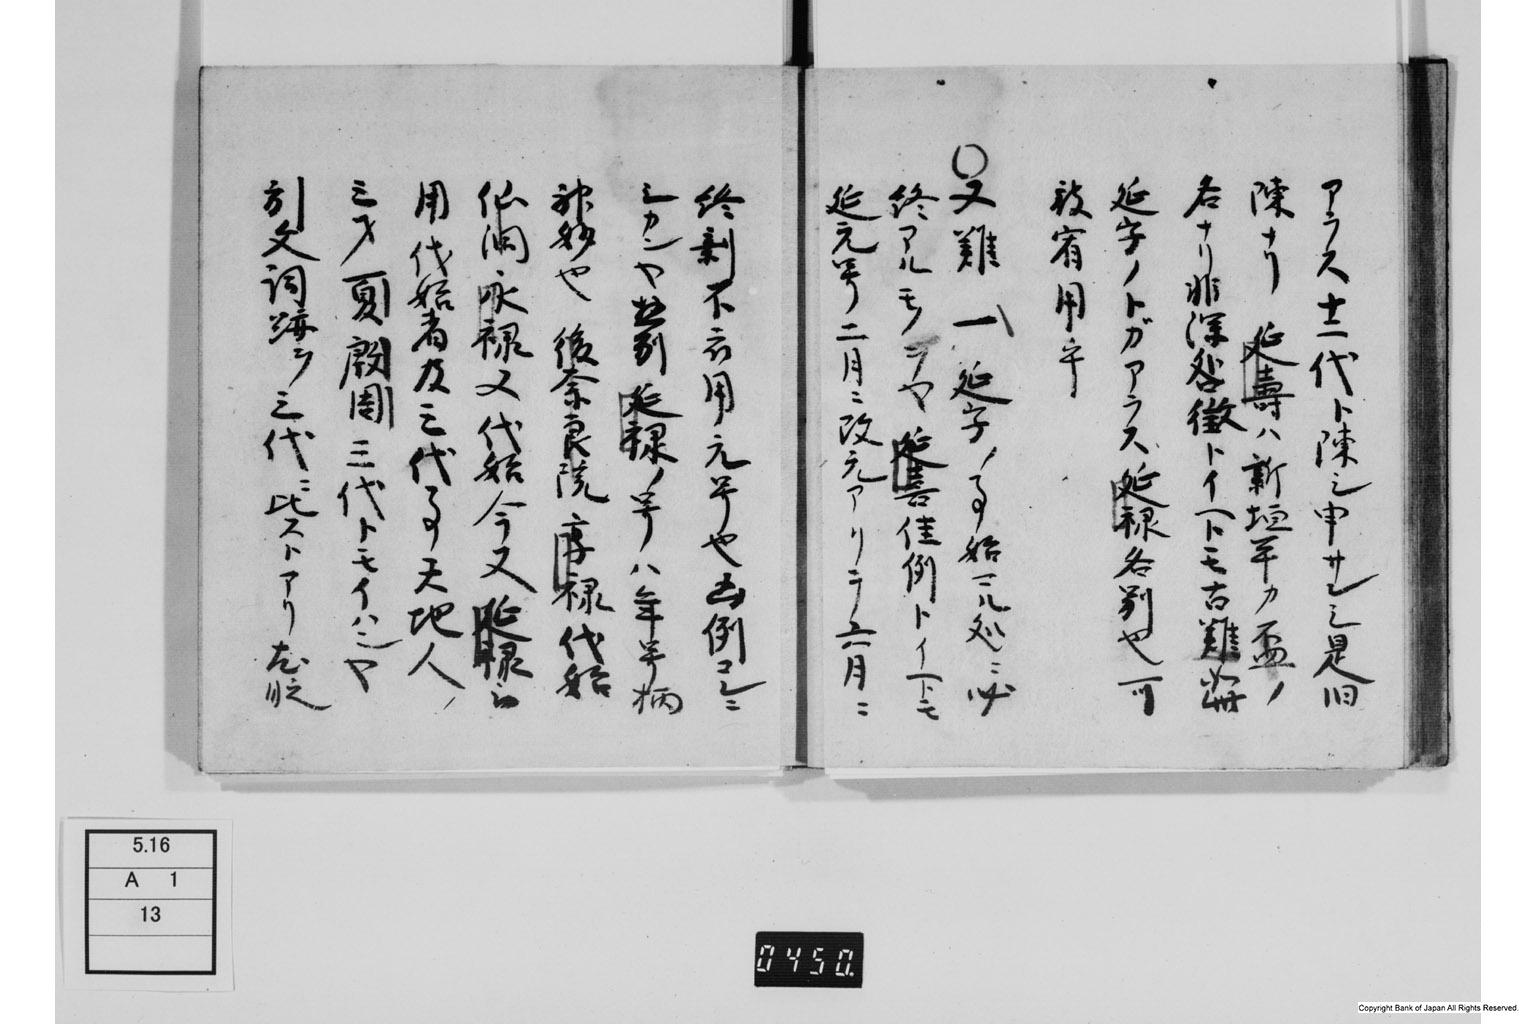 アラス十二代ト陳シ申サレシ是旧
陳ナリ 延壽ハ新垣平カ盃ノ
名ナリ非深咎徴トイヘトモ古難
延字ノトガアラス延禄各別也可
被宥用乎
〇又難 一 延字ノ事始マル処ニ必
終アルモノニヤ 延喜佳例トイヘトモ
延元号二月ニ改元アリテ六月ニ
終剰不被用元号也凶例コレニ
シカンヤ 延禄ノ号ハ年号柄
神妙也 後奈良院 享禄代始
仙洞永禄又代始今又延禄ヲ
用代始者及三代事天地人ノ
三才夏殷周三代トモイハンヤ
引文詞跡ヲ三代ニ比ストアリ
5.16
A 1
13
0450.
Copyright Bank of Japan All Rights Reserved.